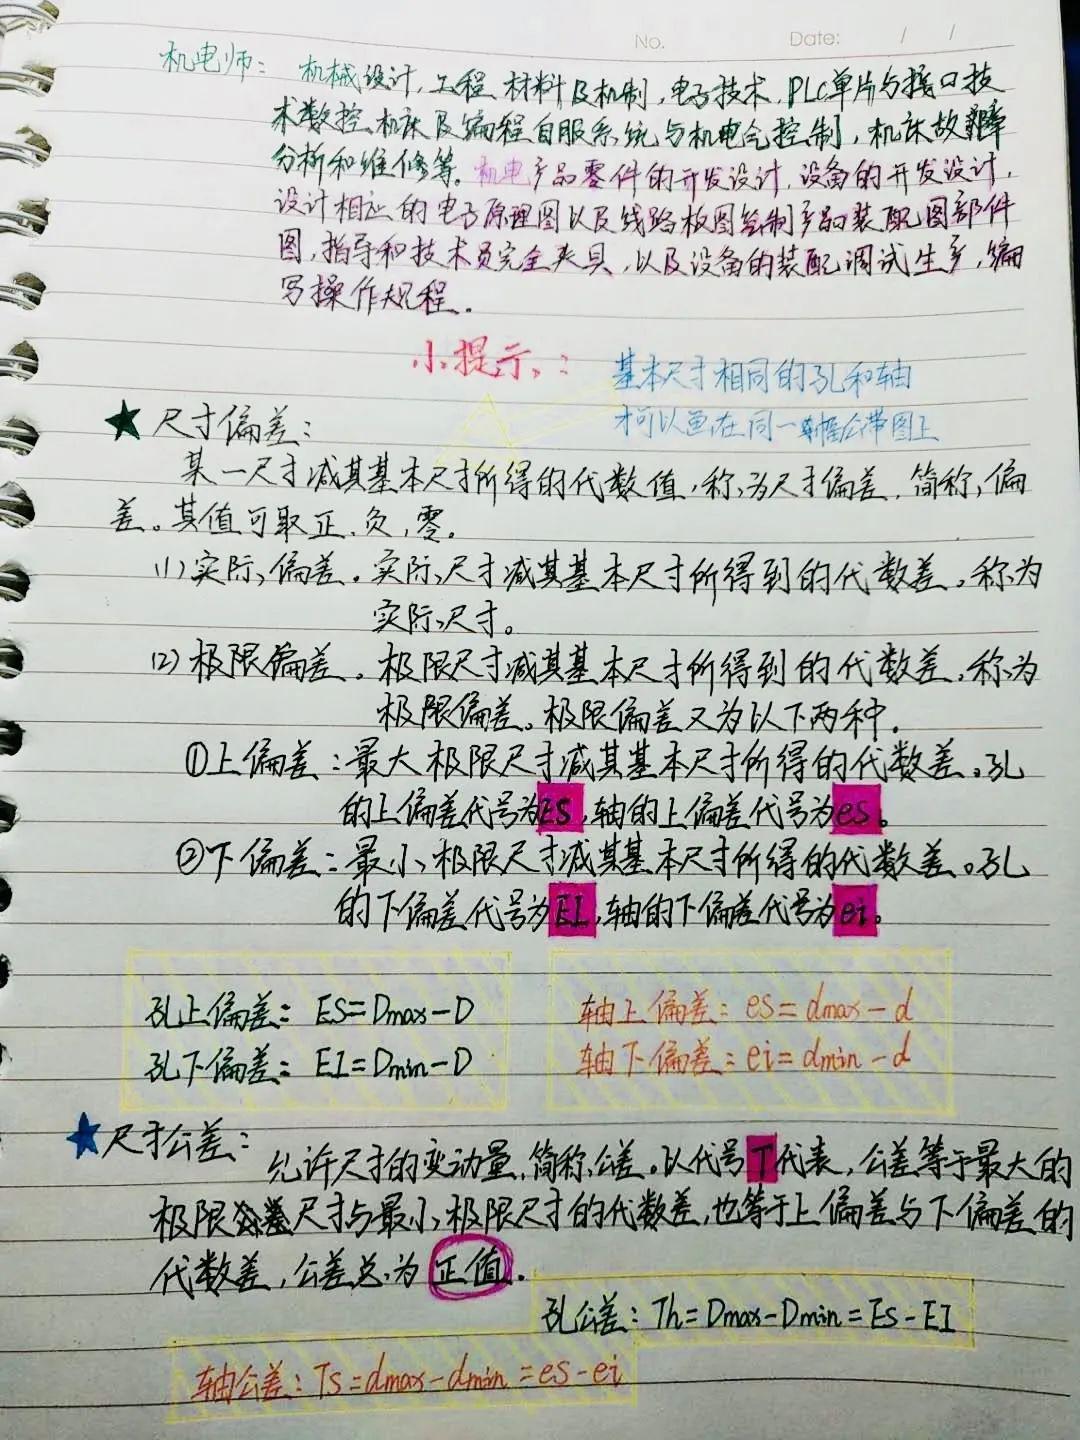 No.
Date: / /
机电师: 机械设计,工程材料及机制,电子技术,PLC单片与接口技
术数控机床及编程自服系统与机电气控制,机床故障
分析和维修等。机电产品零件的开发设计,设备的开发设计,
设计相应的电子原理图以及线路板图绘制产品装配图部件
图,指导和技术员完全夹具,以及设备的装配调试生产,编
写操作规程.
小提示:
基本尺寸相同的孔和轴
才可以画在同一幅公带图上
★尺寸偏差:
某一尺寸减其基本尺寸所得的代数值,称为尺寸偏差.简称,偏
差。其值可取正.负,零。
(1)实际偏差。实际尺寸减其基本尺寸所得到的代数差。称为
实际尺寸。
(2)极限偏差。极限尺寸减其基本尺寸所得到的代数差,称为
极限偏差。极限偏差又为以下两种.
①上偏差:最大极限尺寸减其基本尺寸所得的代数差。孔
的上偏差代号为ES,轴的上偏差代号为es。
②下偏差:最小极限尺寸减其基本尺寸所得的代数差。孔
的下偏差代号为EI,轴的下偏差代号为ei。
孔上偏差:ES=Dmax-D
孔下偏差:EI=Dmin-D
轴上偏差:es=dmax-d
轴下偏差:ei=dmin-d
★尺寸公差:
允许尺寸的变动量,简称公差。以代号T代表,公差等于最大的
极限尺寸与最小极限尺寸的代数差,也等于上偏差与下偏差的
代数差,公差总为正值.
孔公差:Th=Dmax-Dmin=ES-EI
轴公差:Ts=dmax-dmin=es-ei